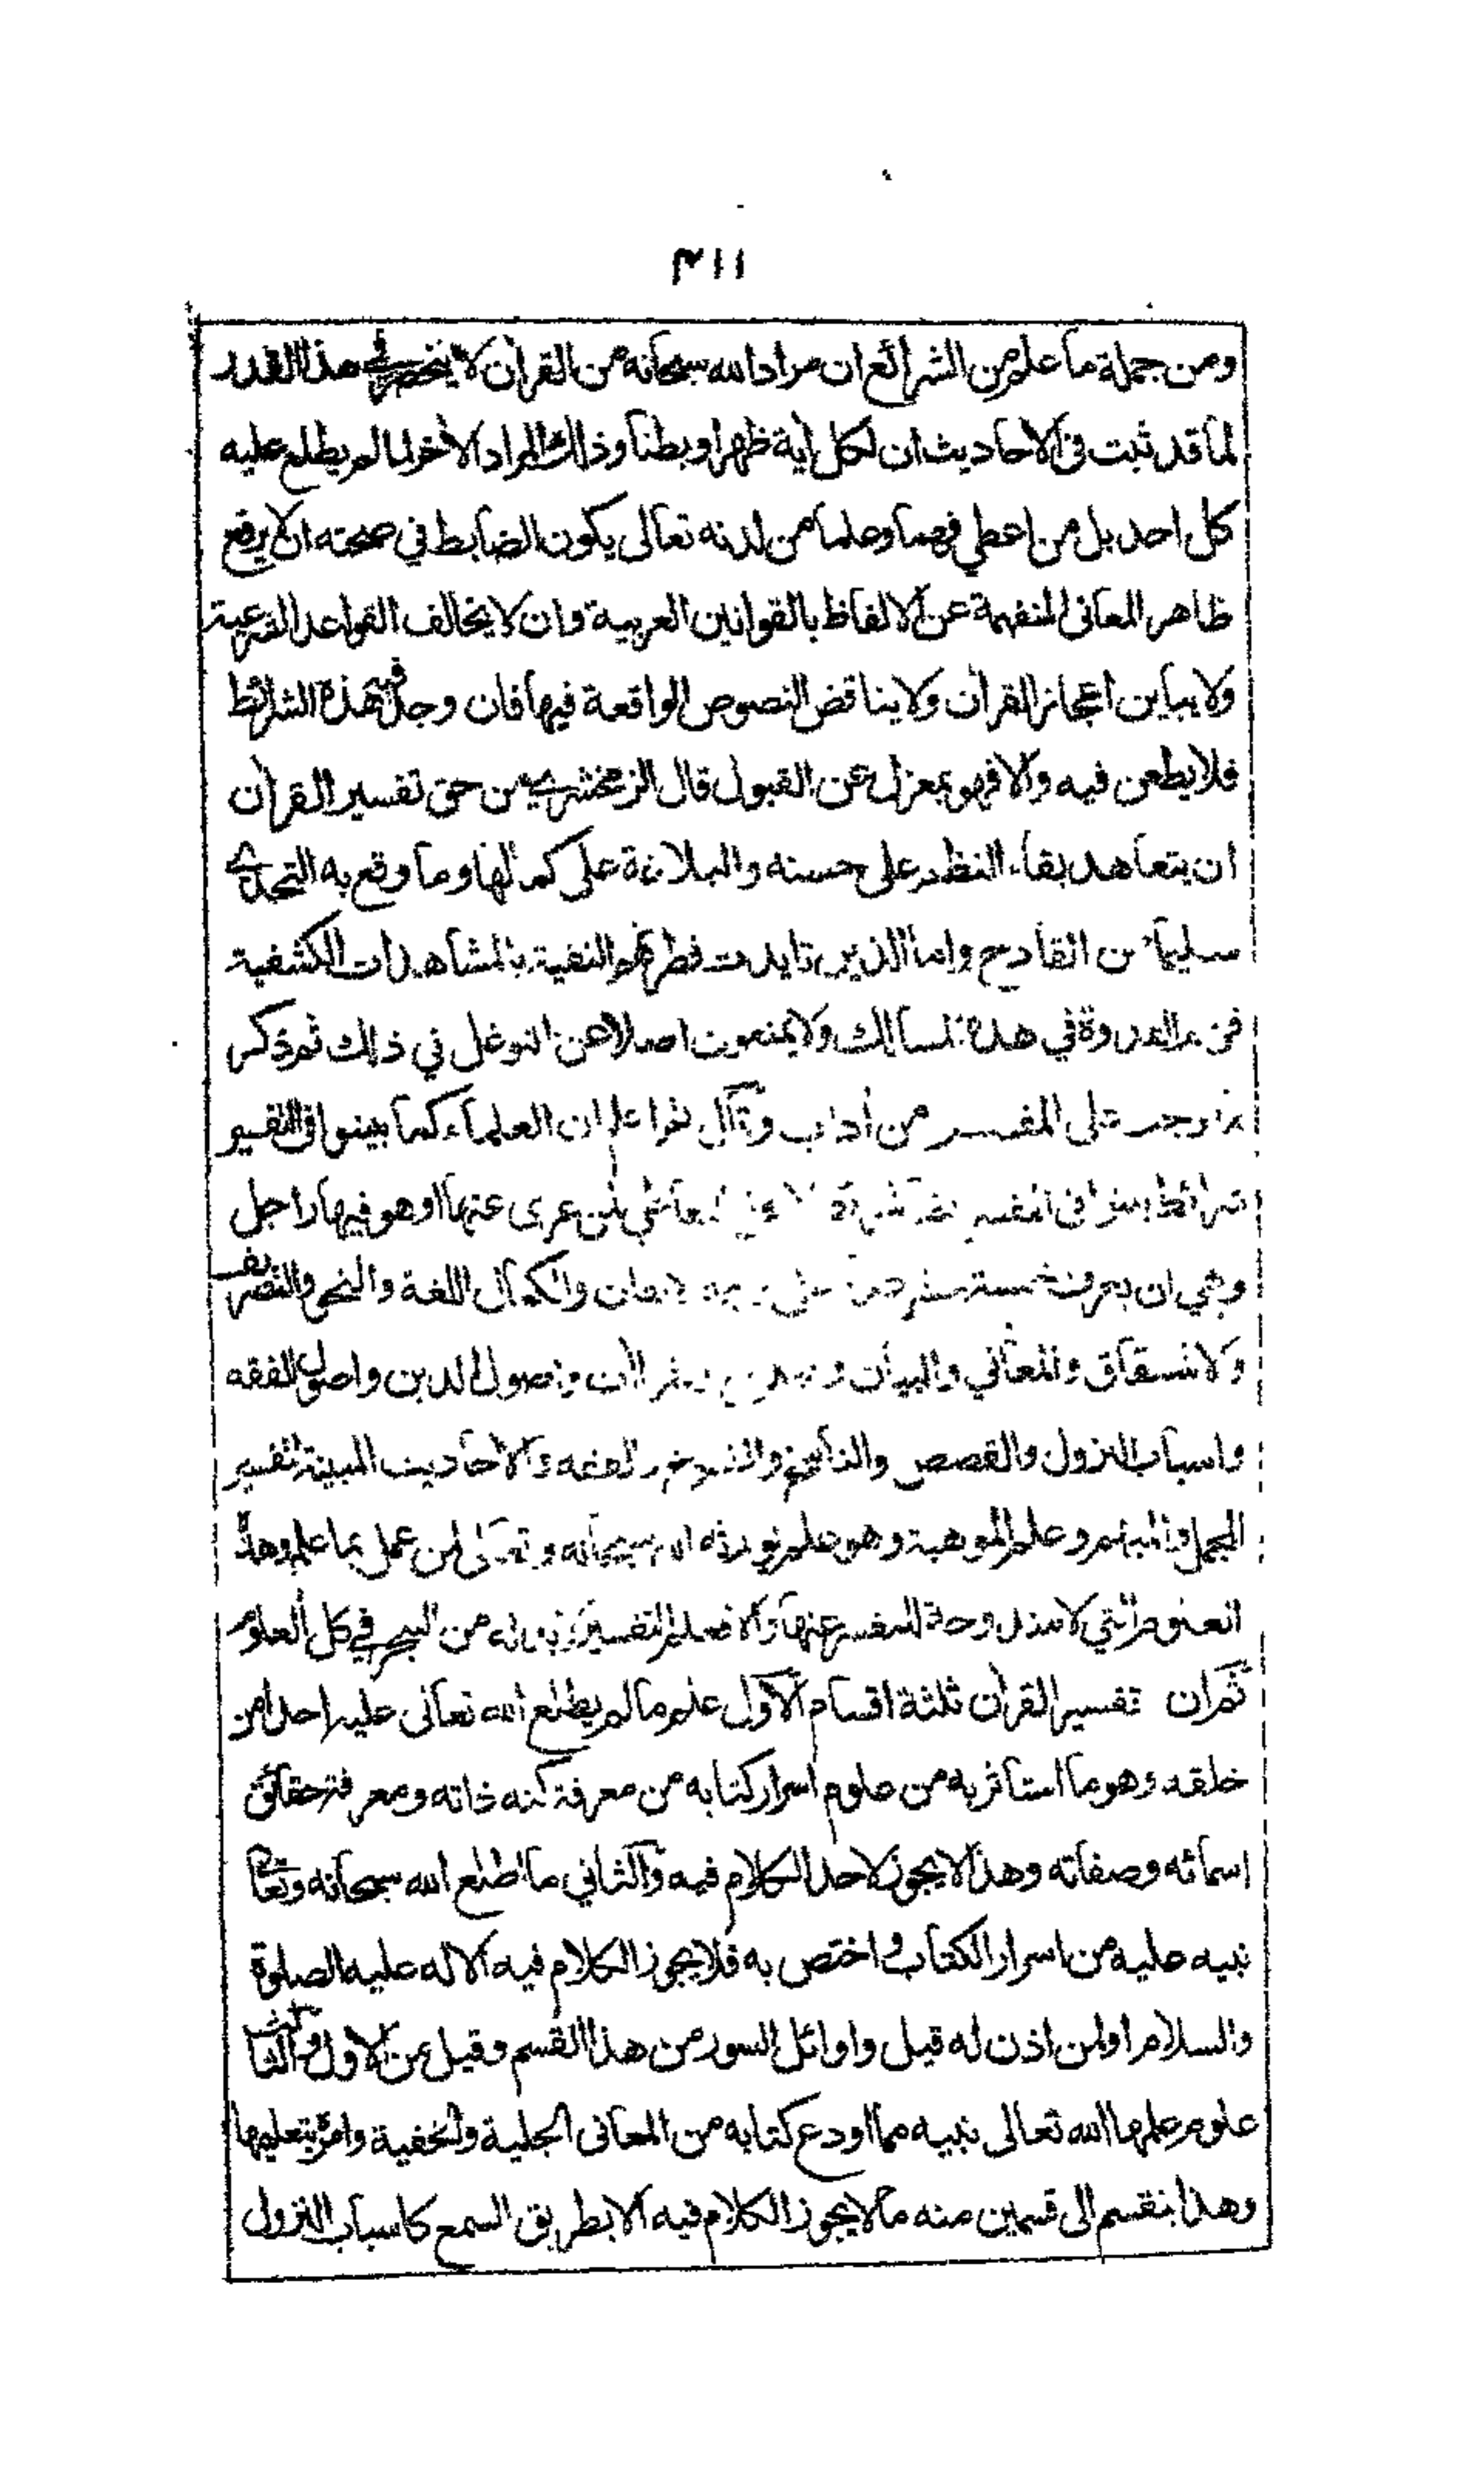 ٣١١
ومن جملة ما علم من الشرائع ان مراد الله سبحانه من القرآن لا ينحصر في هذا القدر
لما قد ثبت في الاحاديث ان لكل آية ظهرا وبطنا وذلك المراد الآخر لما لم يطلع عليه
كل احد بل من اعطي فهما وعلما من لدنه تعالى يكون الضابط في صحته ان لا يرفع
ظاهر المعاني المنفهمة عن الالفاظ بالقوانين العربية وان لا يخالف القواعد الشرعية
ولا يباين اعجاز القرآن ولا يناقض النصوص الواقعة فيها فان وجد فيه هذه الشرائط
فلا يطعن فيه والا فهو بمعزل عن القبول قال الزمخشري من حق تفسير القرآن
ان يتعاهد بقاء النظم على حسنه والبلاغة على كمالها وما وقع به التحدي
سليما من القادح واما الذين تايدت فطرتهم النقية بالمشاهدات الكشفية
فهم القدوة في هذه المسالك ولا يمنعون اصلا عن التوغل في ذلك ثم ذكر
ما وجب على المفسر من آداب وقال ثم اعلم ان العلماء كما بينوا في التفسير
شرائط بينوا في المفسر ايضا شرائط لا يحل التعاطي لمن عرى عنها او هو فيها راجل
وهي ان يعرف خمسة عشر علما على وجه الاتقان والكمال اللغة والنحو والتصريف
والاشتقاق والمعاني والبيان والبديع والقراآت واصول الدين واصول الفقه
واسباب النزول والقصص والناسخ والمنسوخ والفقه والاحاديث المبينة لتفسير
المجمل والمبهم وعلم الموهبة وهو علم يورثه الله سبحانه وتعالى لمن عمل بما علم وهذه
العلوم التي لا مندوحة للمفسر عنها والا فعلم التفسير لا بد له من التبحر في كل العلوم
ثم ان تفسير القرآن ثلثة اقسام الاول علم ما لم يطلع الله تعالى عليه احدا من
خلقه وهو ما استأثر به من علوم اسرار كتابه من معرفة كنه ذاته ومعرفة حقائق
اسمائه وصفاته وهذا لا يجوز لاحد الكلام فيه والثاني ما اطلع الله سبحانه وتعالى
نبيه عليه من اسرار الكتاب واختص به فلا يجوز الكلام فيه الا له عليه الصلوة
والسلام او لمن اذن له قيل واوائل السور من هذا القسم وقيل من الاول والثالث
علوم علمها الله تعالى نبيه مما اودع كتابه من المعاني الجلية والخفية وامره بتعليمها
وهذا ينقسم الى قسمين منه ما لا يجوز الكلام فيه الا بطريق السمع كاسباب النزول